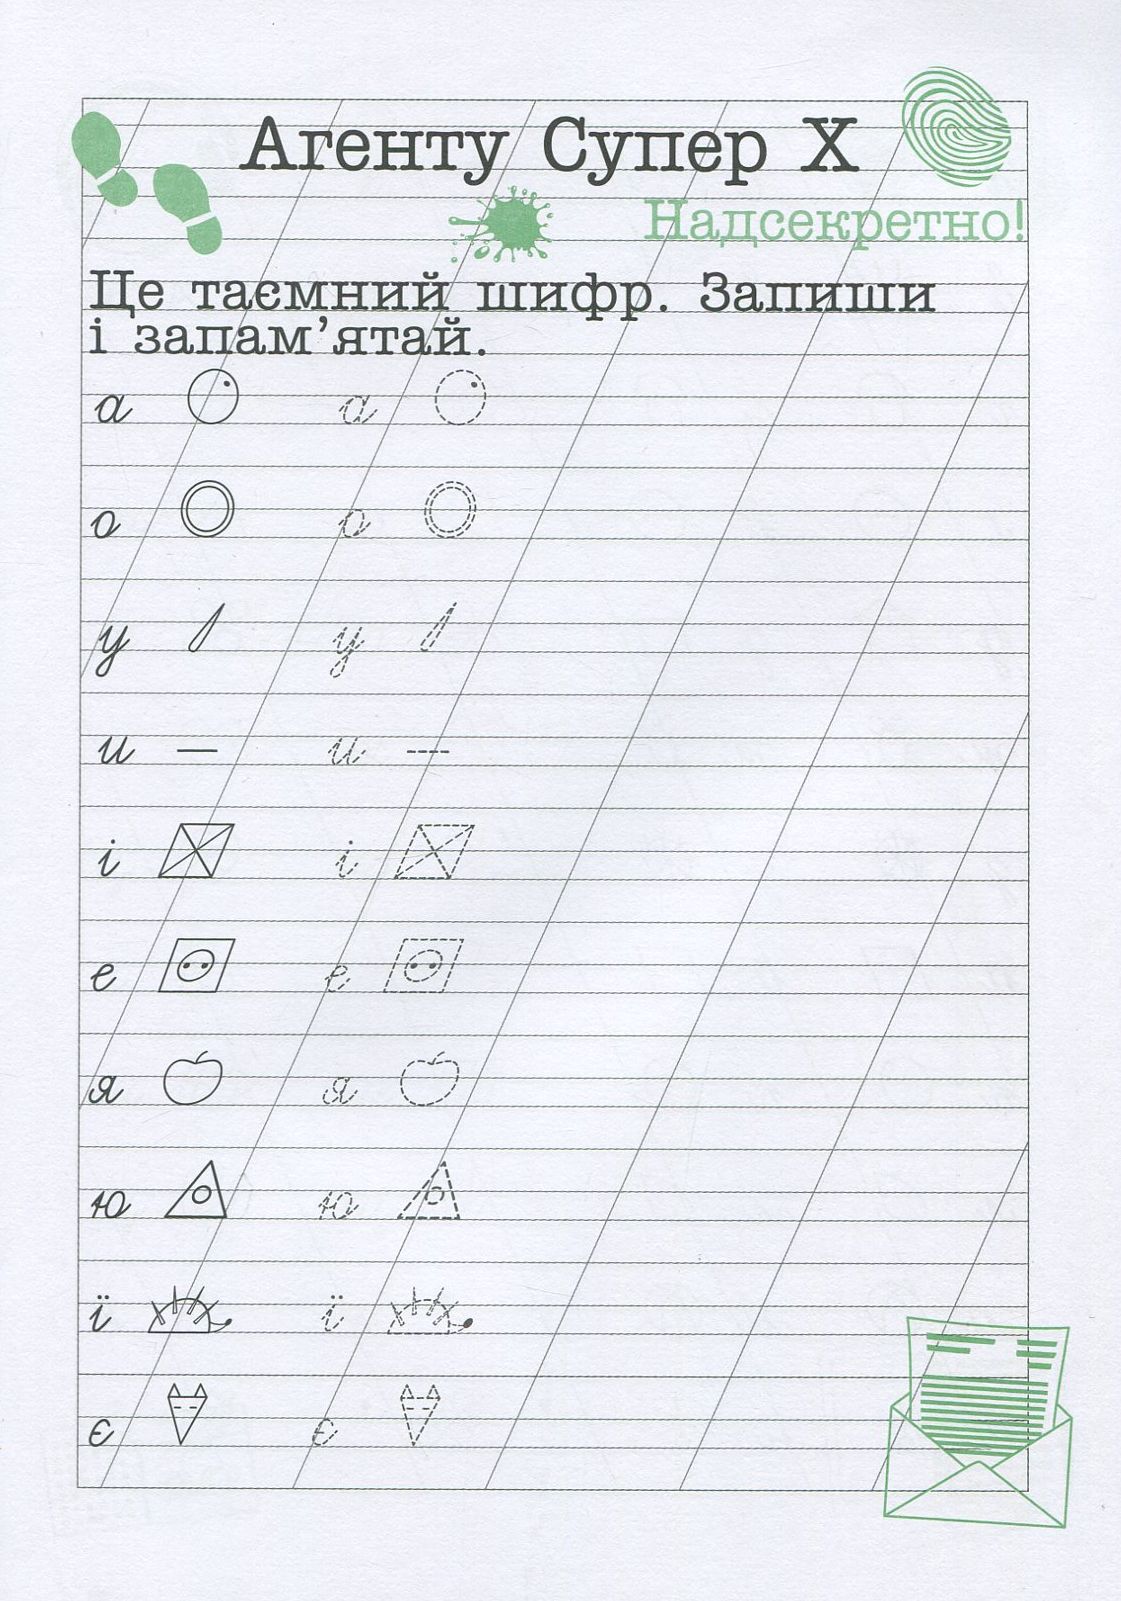 Агенту Супер Х
Надсекретно!
Це таємний шифр. Запиши
і запам’ятай.
а а
о о
у у
и и
і і
е е
я я
ю ю
ї ї
є є